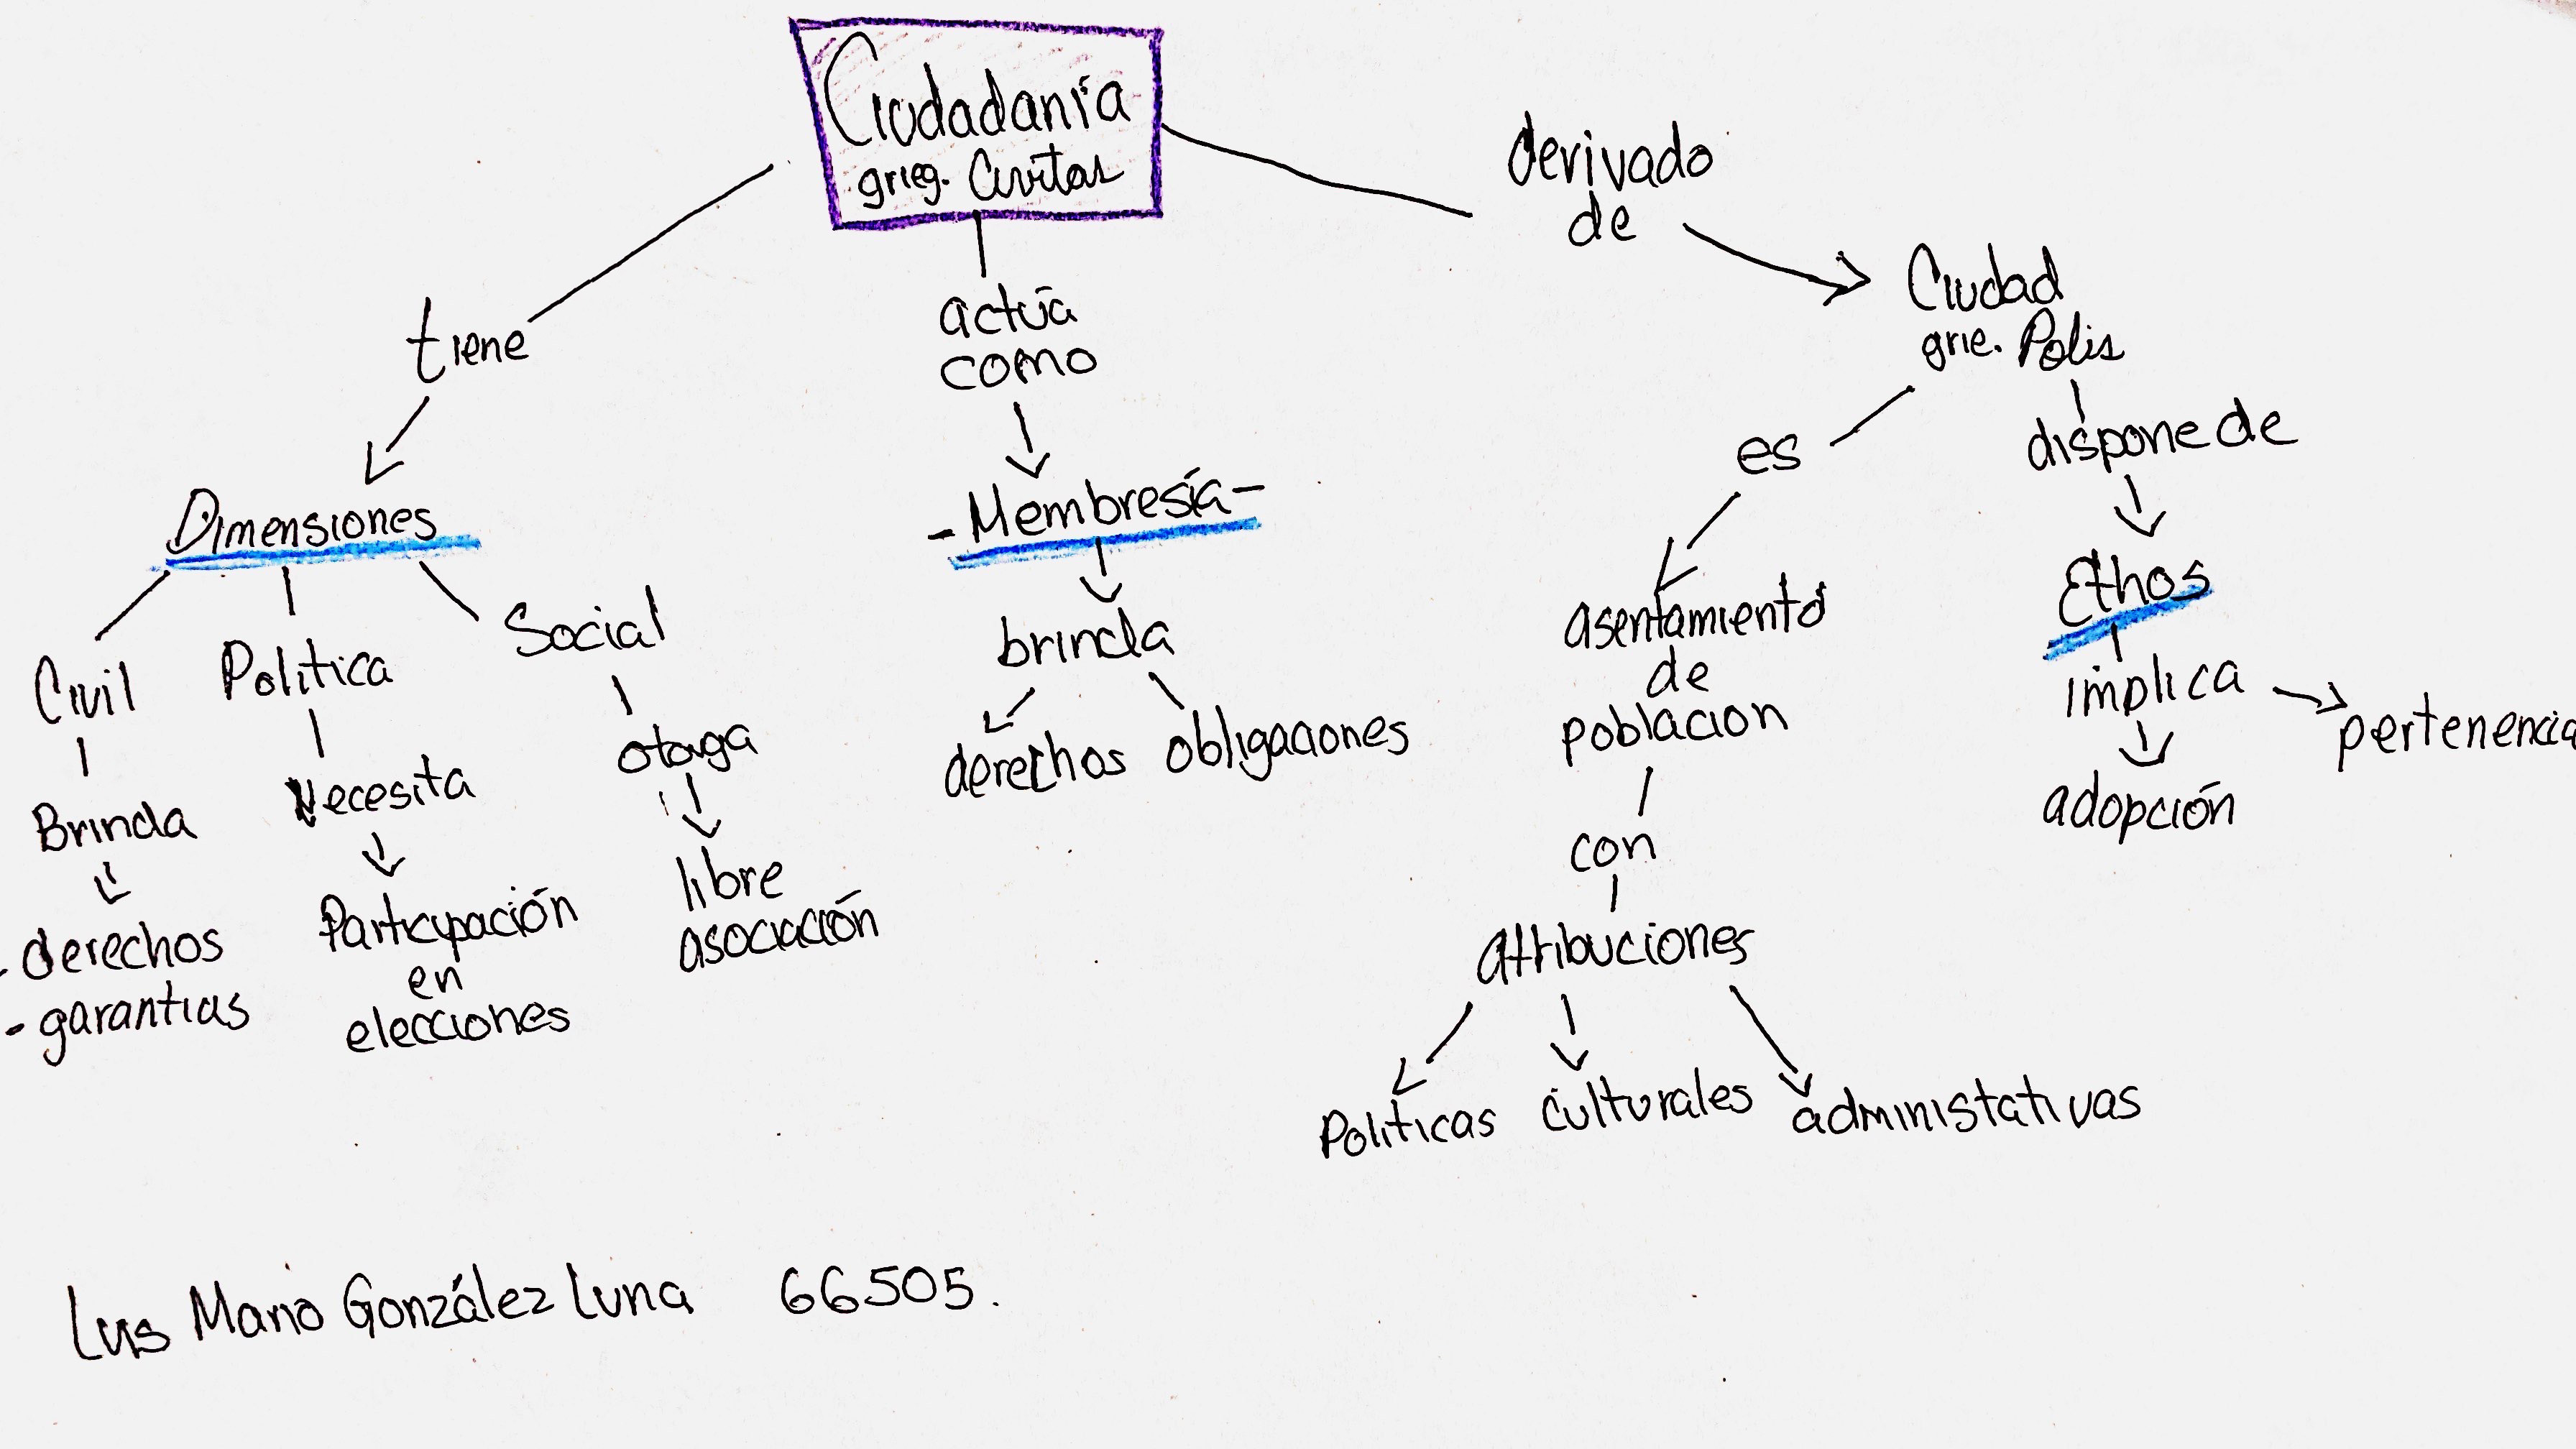 Ciudadanía
grieg. Civitas
tiene
Dimensiones
Civil
Brinda
- derechos
- garantias
Política
Necesita
Participación
en
elecciones
Social
otorga
libre
asociación
actúa
como
- Membresía -
brinda
derechos
obligaciones
derivado
de
Ciudad
grie. Polis
es
asentamiento
de
poblacion
con
atribuciones
Politicas
culturales
administativas
dispone de
Ethos
implica
adopción
pertenencia
Luis Mario González Luna 66505.